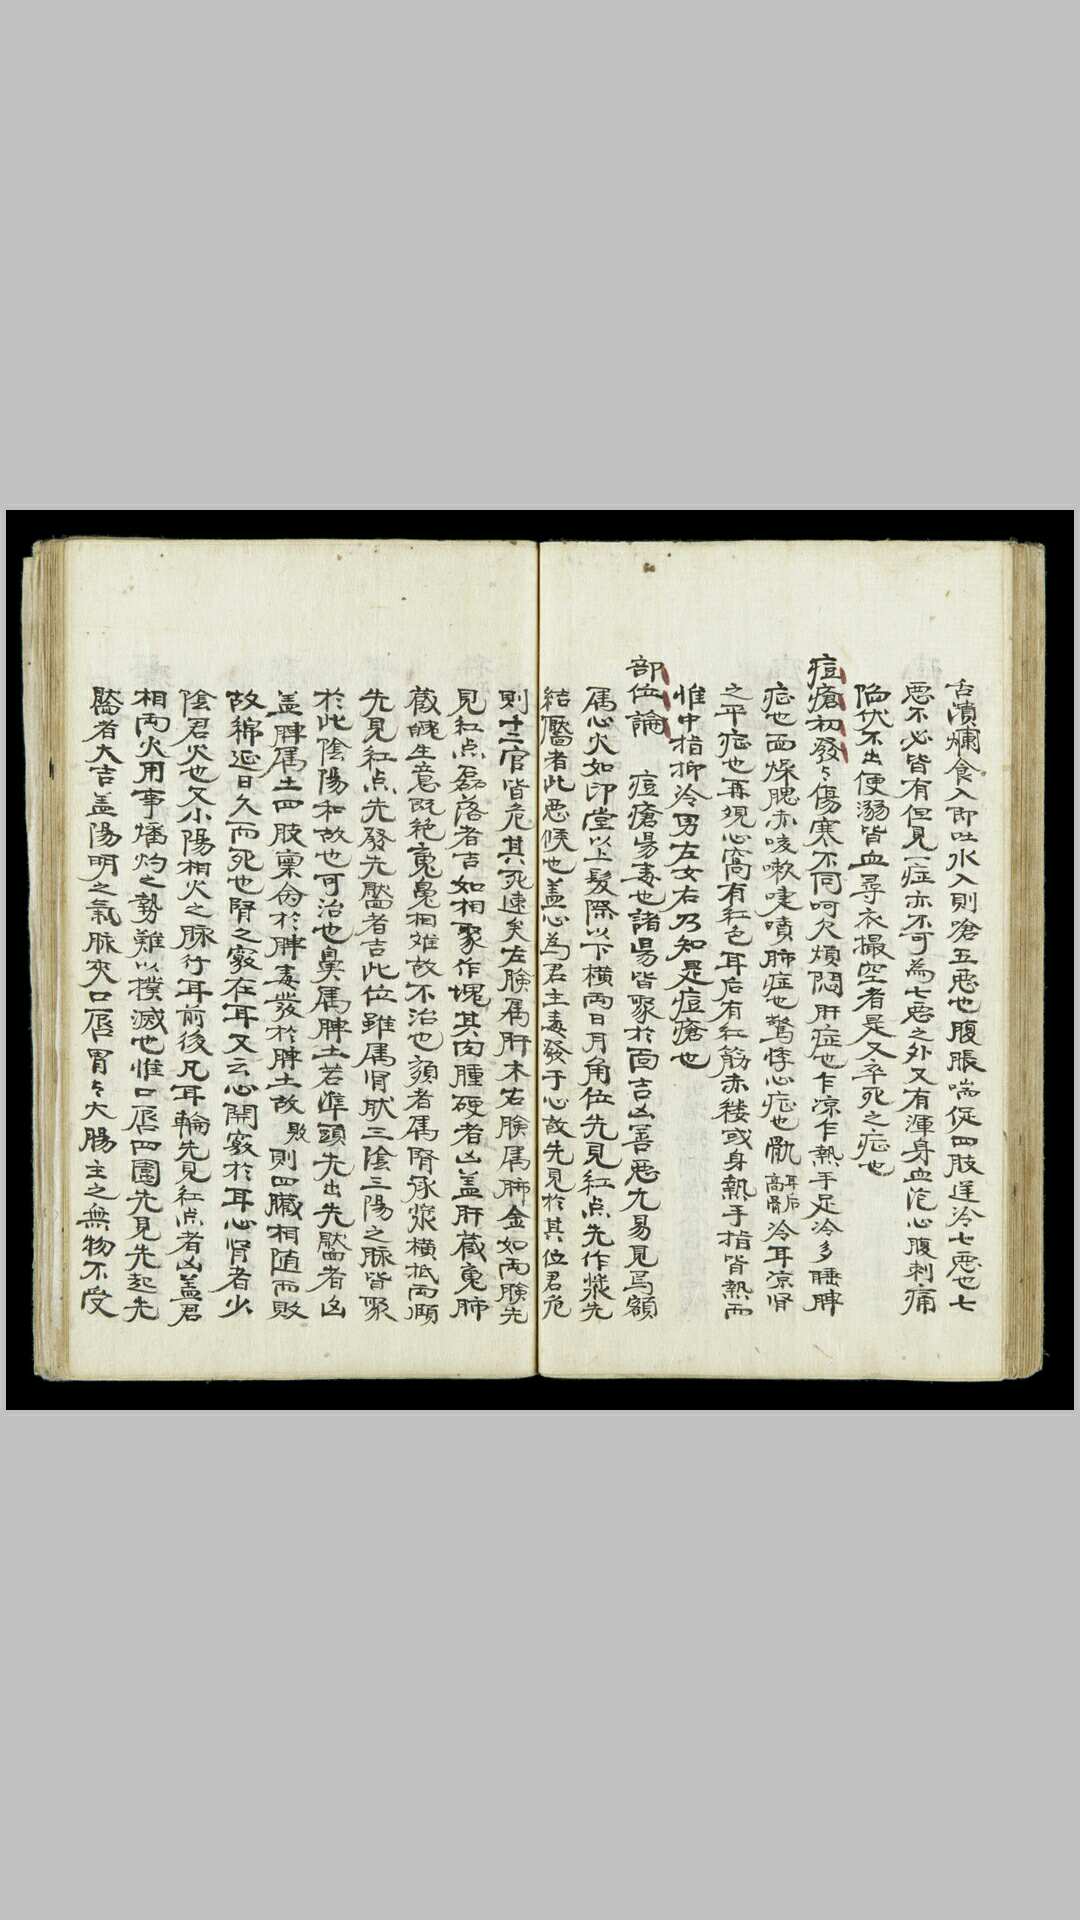 舌潰爛食入即吐水入則嗆五惡也腹脹喘促四肢逆冷七惡也七
惡不必皆有但見一症亦不可為七惡之外又有渾身血泡心腹刺痛
陷伏不出便溺皆血尋衣撮空者是又卒死之症也
痘瘡初發〻傷寒不同呵欠煩悶肝症也乍凉乍熱手足冷多睡脾
症也面燥腮赤咳嗽嚏噴肺症也驚悸心症也骩耳后高骨冷耳凉肾
之平症也再覌心窩有紅色耳后有紅筋赤縷或身熱手指皆熱而
惟中指抑冷男左女右乃知是痘瘡也
部位論 痘瘡昜毒也諸昜皆聚於面吉凶善惡尢易見焉額
属心火如印堂以上髮際以下横両日月角位先見紅点先作漿先
結靨者此惡候也盖心為君主毒發于心故先見於其位君危
則十二官皆危其死速矣左臉属肝木右臉属肺金如両臉先
見紅点磊落者吉如相聚作塊其肉腫硬者凶盖肝蔵䰟肺
蔵魄生意既絶䰟鬼相难故不治也頦者属腎承漿横抵両頤
先見紅点先發先靨者吉此位雖属肾肰三陰三陽之脉皆聚
於此陰陽和故也可治也鼻属脾土若準頭先出先靨者凶
盖脾属土四肢稟命於脾毒發於脾土故敗則四臟相随而敗
故綿延日久而死也腎之竅在耳又云心開竅於耳心肾者少
陰君火也又小陽相火之脉行耳前後凡耳輪先見紅点者凶盖君
相両火用事燔灼之勢難以撲滅也惟口唇四圍先見先起先
靨者大吉盖陽明之氣脉夾口唇胃〻大腸主之無物不受